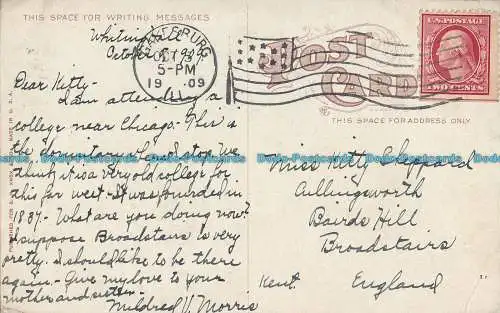 THIS SPACE FOR WRITING MESSAGES
Whiting Hall
October 5, 1909
Dear Kitty-
I am attending a
college near Chicago. This is
the dormitory where I stop. We
think it is a very old college for
this far west - It was founded in
1837. What are you doing now?
I suppose Broadstairs is very
pretty. I should like to be there
again. Give my love to your
mother and sister.
Mildred V. Morris
OCT 5
5-PM
1909
ILL.
POST
CARD
U.S. POSTAGE
TWO CENTS
THIS SPACE FOR ADDRESS ONLY
Miss Kitty Sheppard
Cullingsworth
Bairds Hill
Broadstairs
Kent. England
Dodo-Postcards Dodo-Postcards Dodo-Postcards Dodo-Postcards